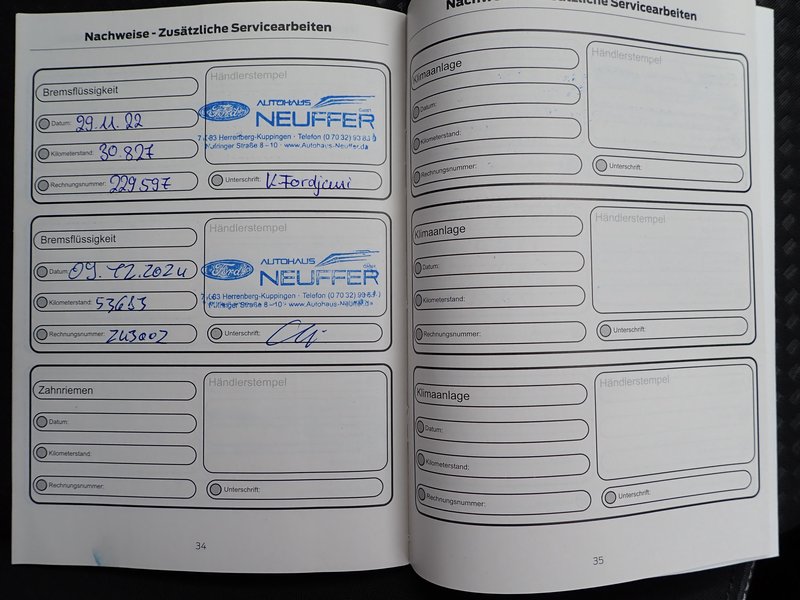 Nachweise - Zusätzliche Servicearbeiten
Bremsflüssigkeit
Datum: 29.11.22
Kilometerstand: 30.827
Rechnungsnummer: 229597
Händlerstempel
Ford AUTOHAUS
NEUFFER GmbH
Herrenberg-Kuppingen · Telefon (0 70 32)
Straße 8-10 · www.Autohaus-Neuffer.de
Unterschrift:
Bremsflüssigkeit
Datum: 09.12.2024
Kilometerstand:
Rechnungsnummer: 243002
Händlerstempel
Ford AUTOHAUS
NEUFFER GmbH
Herrenberg-Kuppingen · Telefon (0 70 32)
Straße 8-10 · www.Autohaus-Neuffer.de
Unterschrift:
Zahnriemen
Datum:
Kilometerstand:
Rechnungsnummer:
Händlerstempel
Unterschrift:
34
Servicearbeiten
Klimaanlage
Datum:
Kilometerstand:
Rechnungsnummer:
Händlerstempel
Unterschrift:
Klimaanlage
Datum:
Kilometerstand:
Rechnungsnummer:
Händlerstempel
Unterschrift:
Klimaanlage
Datum:
Kilometerstand:
Rechnungsnummer:
Händlerstempel
Unterschrift:
35